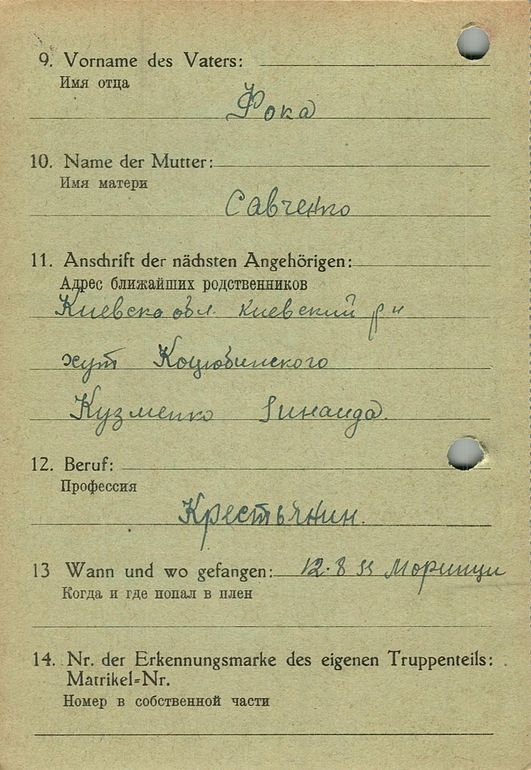 9. Vorname des Vaters:
Имя отца
Фока
10. Name der Mutter:
Имя матери
Савченко
11. Anschrift der nächsten Angehörigen:
Адрес ближайших родственников
Киевска обл. Киевский р-н
хут Коцюбинского
Кузменко Зинаида.
12. Beruf:
Профессия
Крестьянин.
13 Wann und wo gefangen:
Когда и где попал в плен
14. Nr. der Erkennungsmarke des eigenen Truppenteils:
Matrikel-Nr.
Номер в собственной части